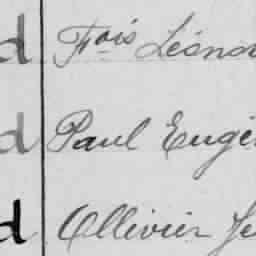 d Fois Léono
d Paul Eugè
d Ollivier Je